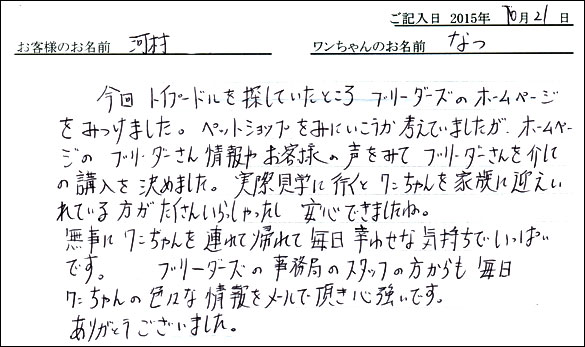 ご記入日 2015年 10月 21 日
お客様のお名前 河村 ワンちゃんのお名前 なつ
今回 トイプードルを探していたところ ブリーダーズのホームページ
をみつけました。ペットショップをみにいこうか考えていましたが、ホームペー
ジの ブリーダーさん情報や お客様の声をみて ブリーダーさんを介して
の購入を決めました。実際見学に行くと ワンちゃんを家族に迎えい
れている方がたくさんいらっしゃったし 安心できましたね。
無事にワンちゃんを連れて帰れて毎日幸わせな気持ちでいっぱい
です。 ブリーダーズの事務局のスタッフの方からも 毎日
ワンちゃんの色々な情報をメールで頂き心強いです。
ありがとうございました。